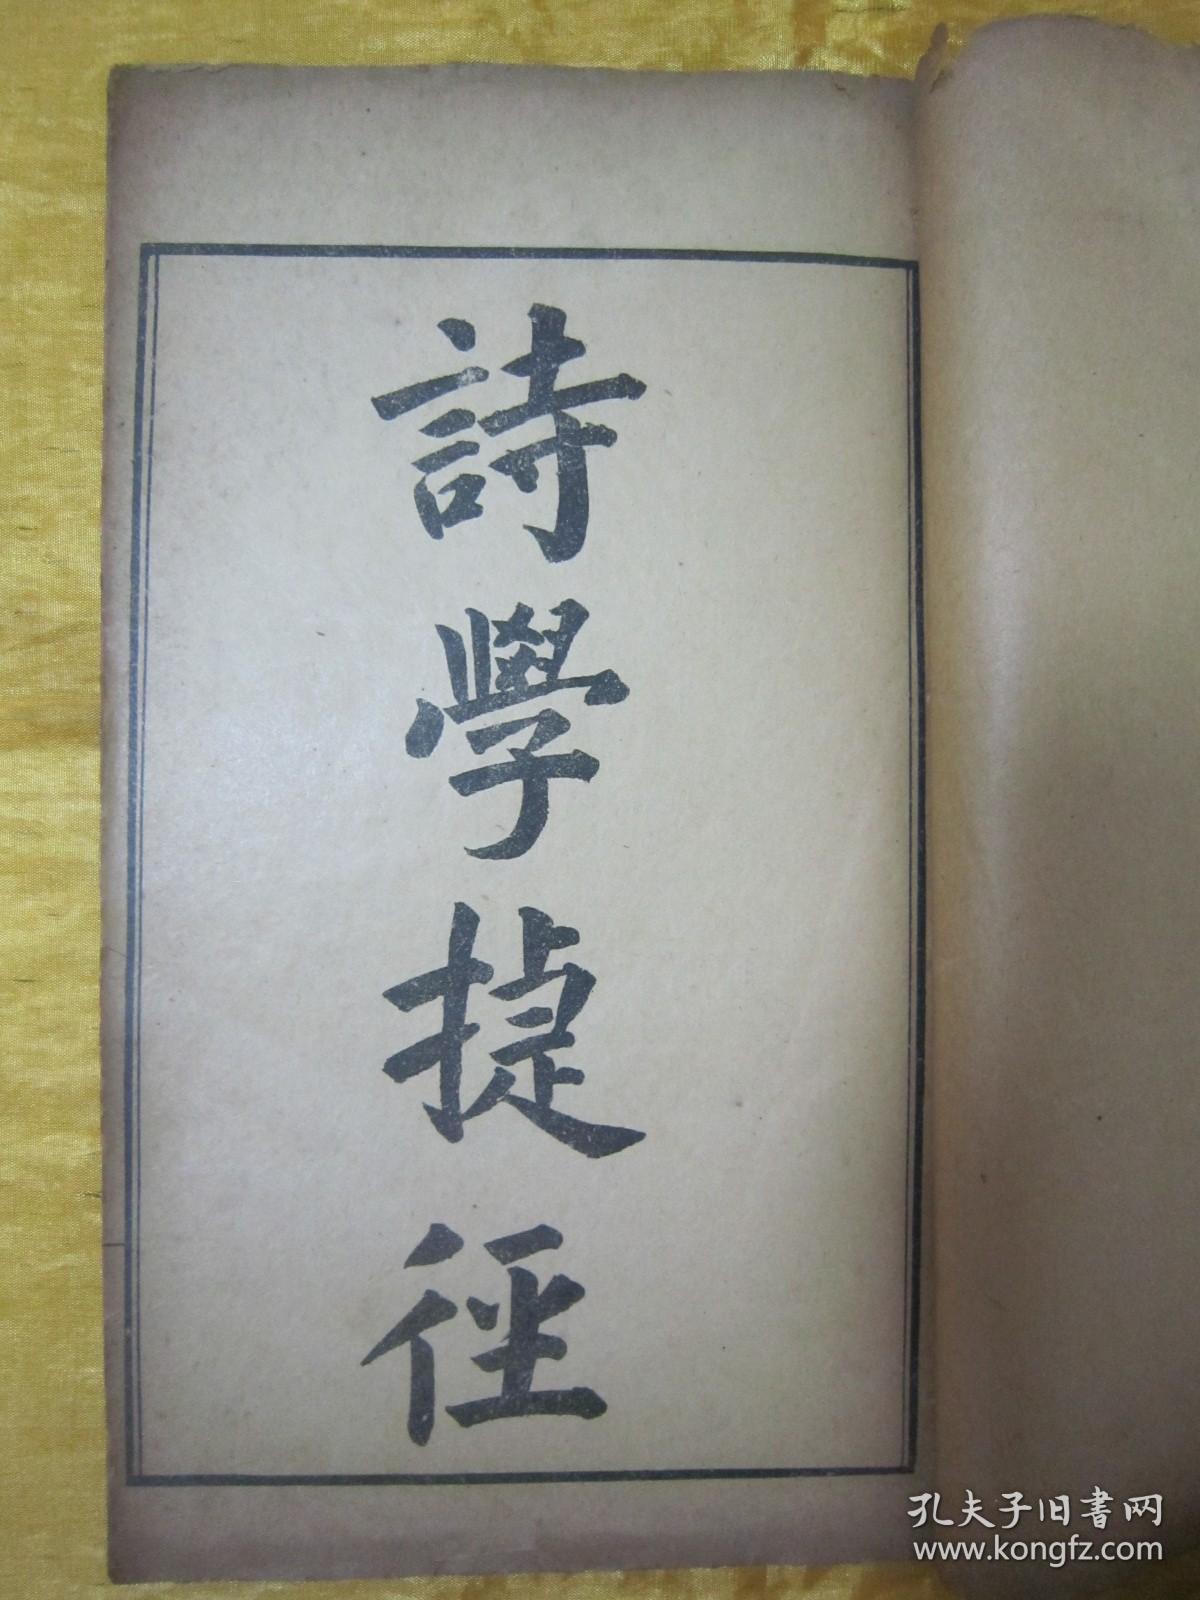 詩學捷徑
孔夫子旧書网
www.kongfz.com